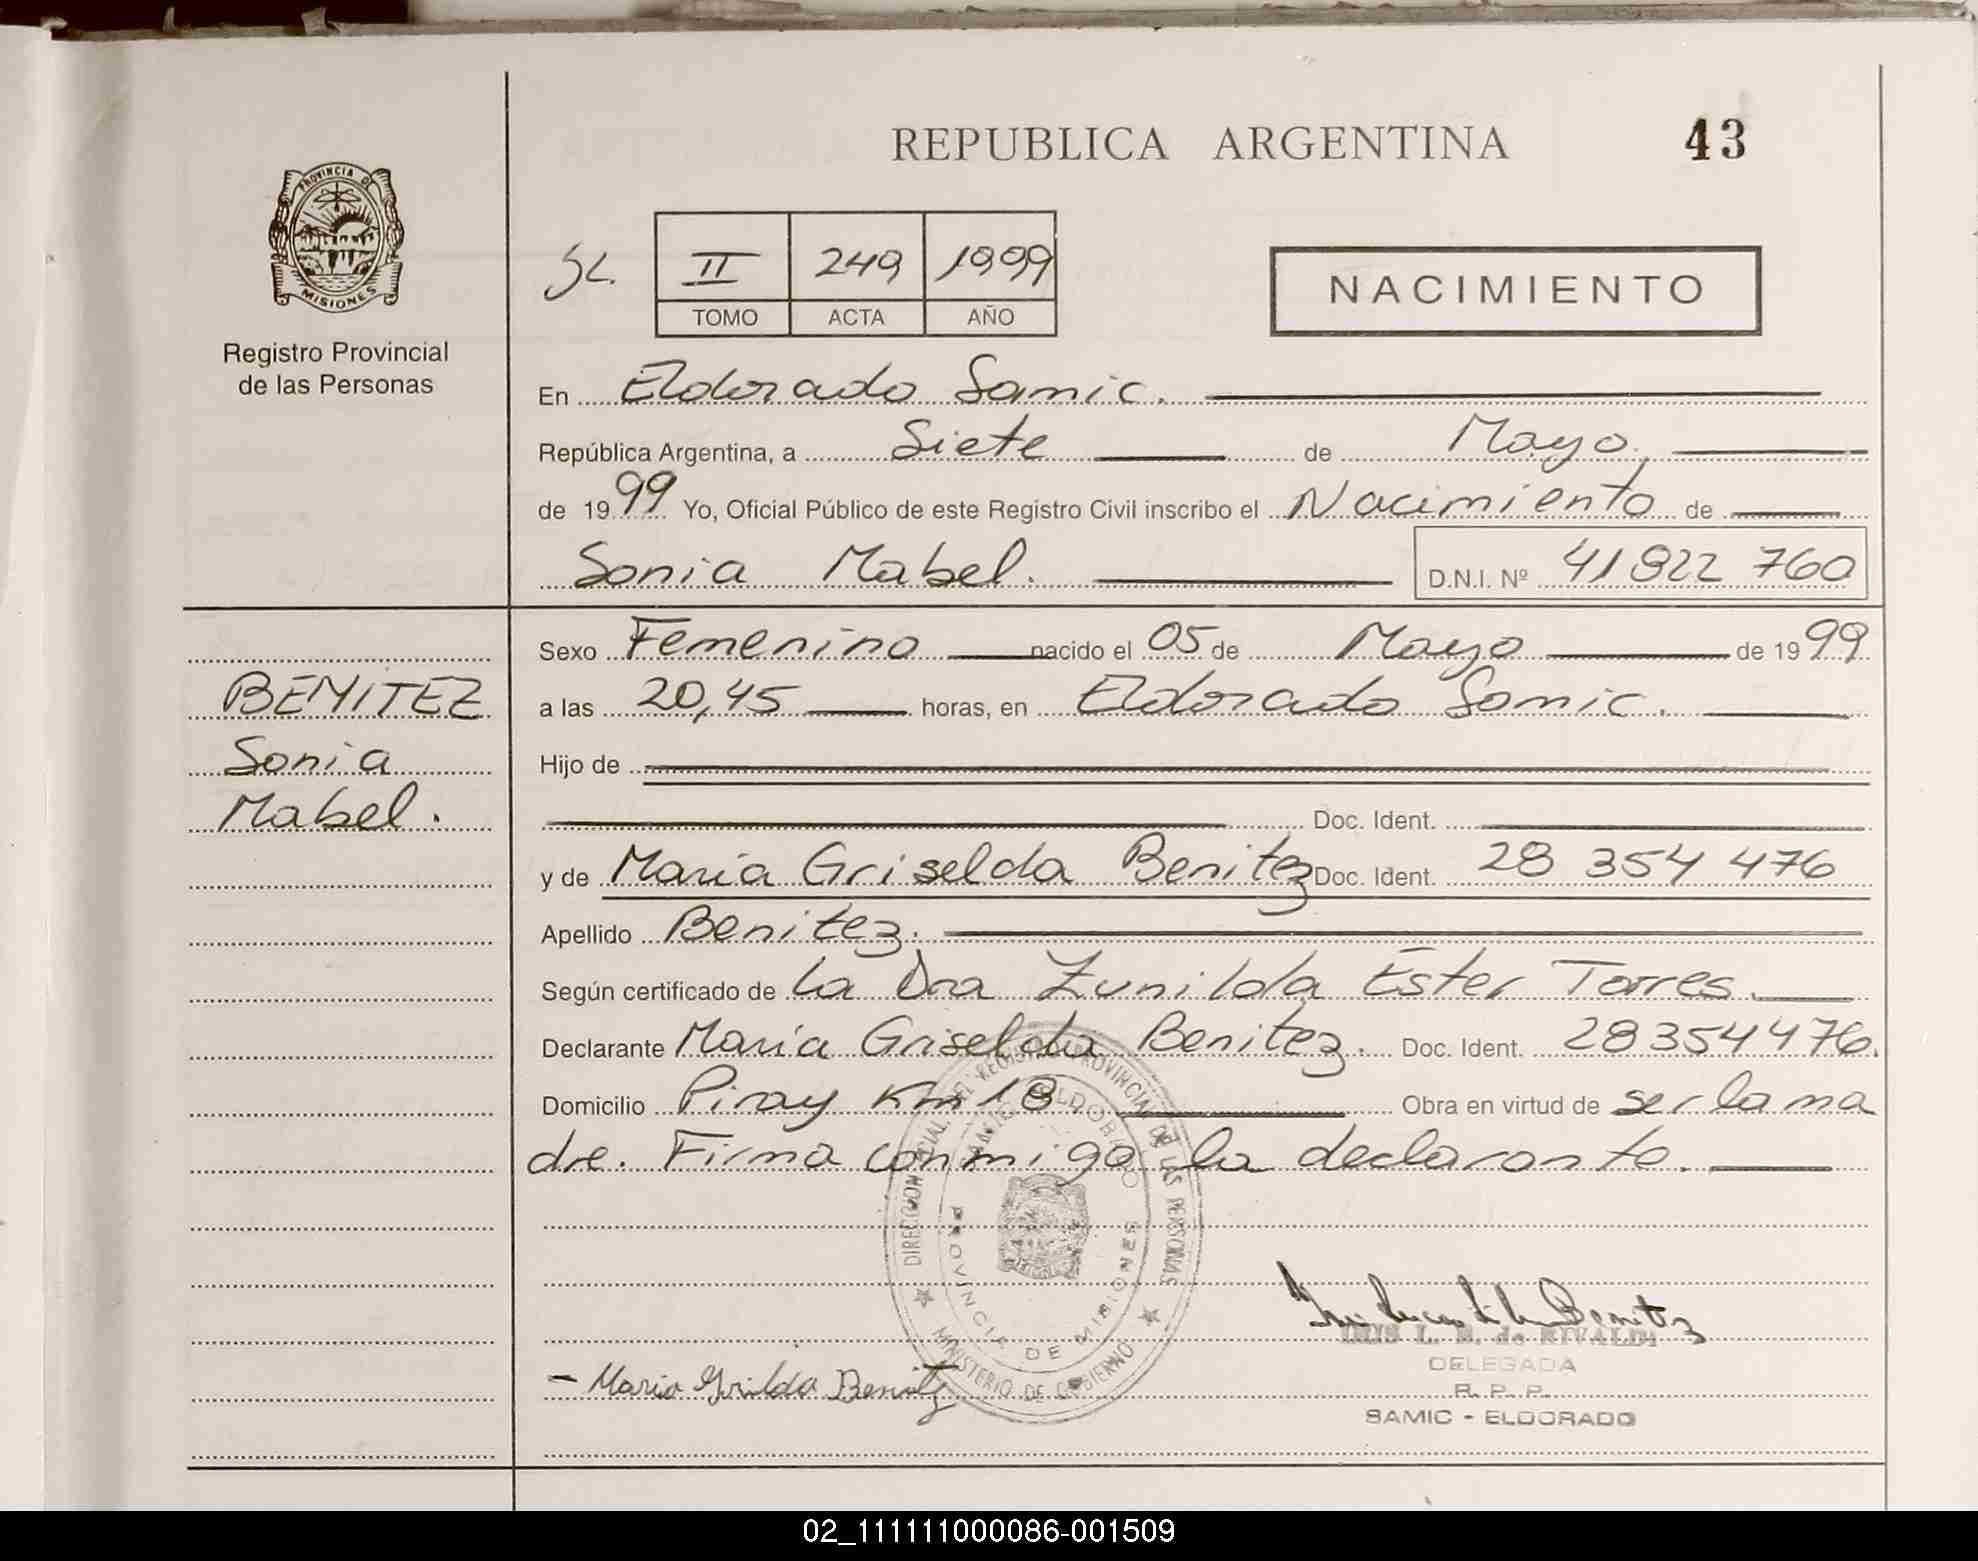 REPUBLICA ARGENTINA
43
PROVINCIA DE
MISIONES
Registro Provincial
de las Personas
II 249 1999
TOMO ACTA AÑO
NACIMIENTO
En Eldorado Samic.
República Argentina, a Siete de Mayo.
de 1999 Yo, Oficial Público de este Registro Civil inscribo el Nacimiento de
Sonia Mabel. D.N.I. Nº 41 822 760
BENITEZ
Sonia
Mabel.
Sexo Femenino nacido el 05 de Mayo de 1999
a las 20,45 horas, en Eldorado Samic.
Hijo de
Doc. Ident.
y de María Griselda Benitez Doc. Ident. 28 354 476
Apellido Benitez.
Según certificado de la Dra Zunilda Ester Torres.
Declarante María Griselda Benitez. Doc. Ident. 28354476.
Domicilio Piray Km 18. Obra en virtud de ser la ma
dre. Firma conmigo la declarante.
DIRECCION GRAL. DEL REGISTRO PROVINCIAL DE LAS PERSONAS
SAMIC ELDORADO
PROVINCIA DE MISIONES
MINISTERIO DE GOBIERNO
- Maria Grilda Benitez
IRIS L. B. de RIVALDI
DELEGADA
R. P. P.
SAMIC - ELDORADO
02_111111000086-001509